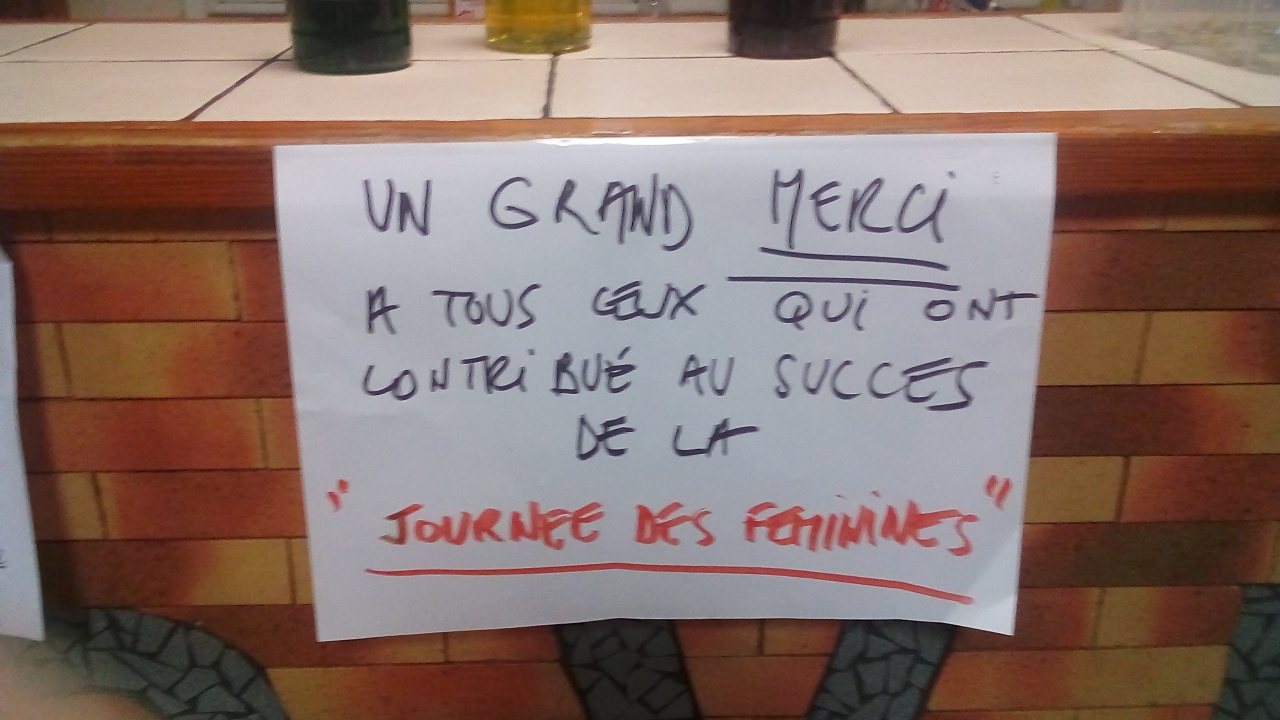 UN GRAND MERCi
A TOUS CEUX QUi ONT
CONTRiBUÉ AU SUCCES
DE LA
"JOURNEE DES FEMiNiNES"